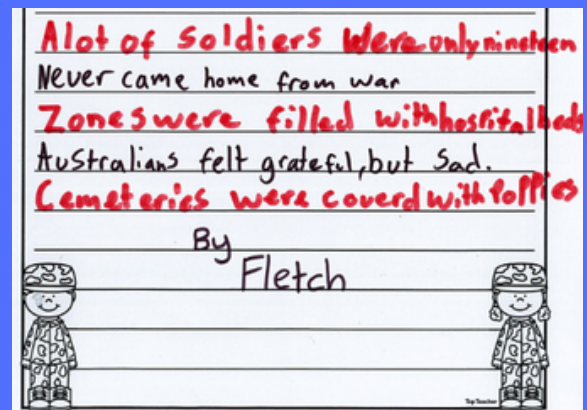 Alot of Soldiers Were only nineteen
Never came home from war
Zones were filled with hospital beds
Australians felt grateful, but sad.
Cemeteries were coverd with Poppies
By
Fletch
Top Teacher